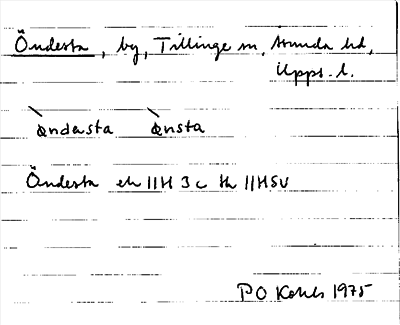 Öndesta, by, Tillinge sn, Åsunda hd,
Upps. l.
`öndersta `önsta
Öndesta ek 11H 3c tk 11HSV
PO 1975